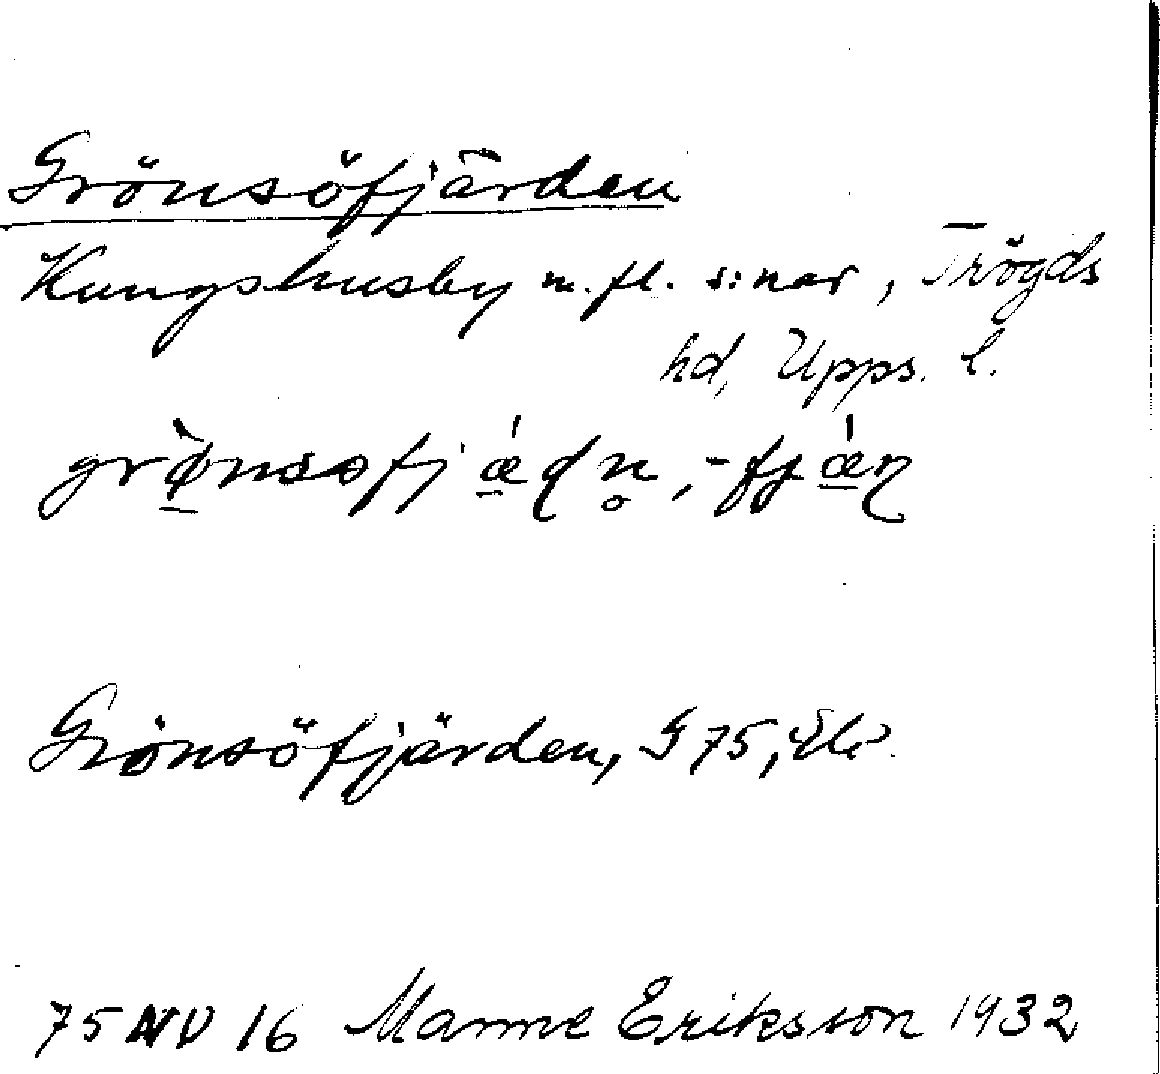 Grönsöfjärden
Kungshusby m. fl. s:nar, Trögds
hd, Upps. l.
Grönsöfjärden, G 75, Ek.
75 NV 16 Manne Eriksson 1932